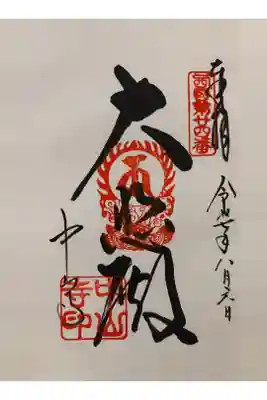 奉拝
西国第廿四番
大悲殿
中山寺
中山寺印
令和七年八月 日